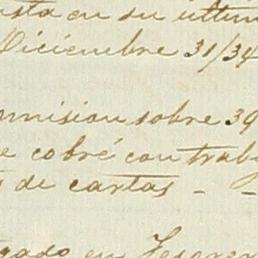 usta en su ultim
Diciembre 31/34
mmision sobre 39
e cobré con trab
s de cartas - -
gado en Tesorer